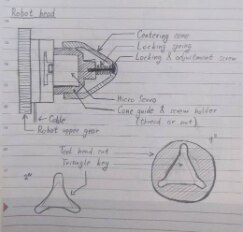 Robot head
Centering cone
Locking spring
Locking & adjustment screw
Micro Servo
Cone guide & screw holder
(thread or nut)
Cable
Robot upper gear
Tool head nut
Triangle key